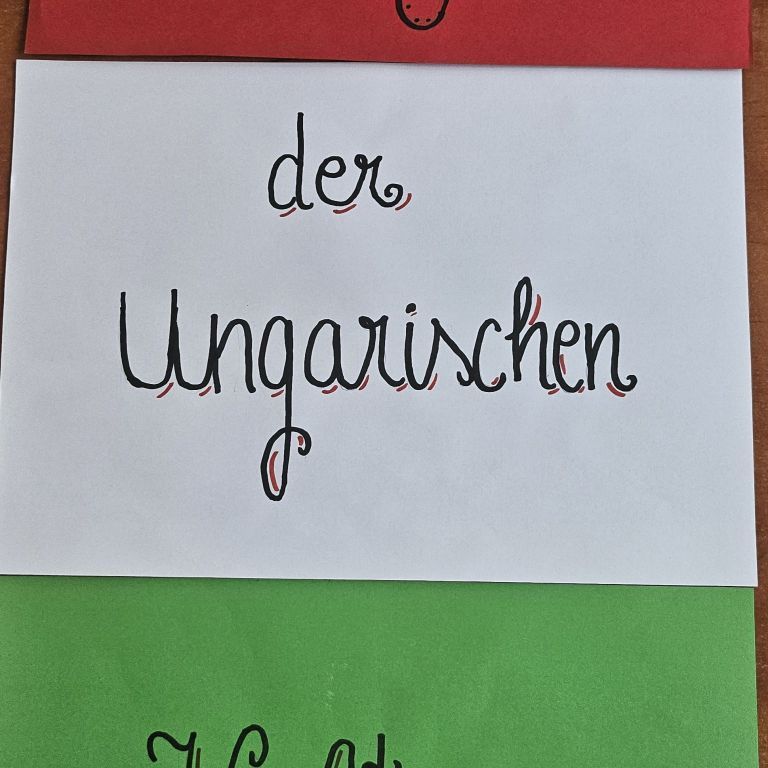 der
Ungarischen